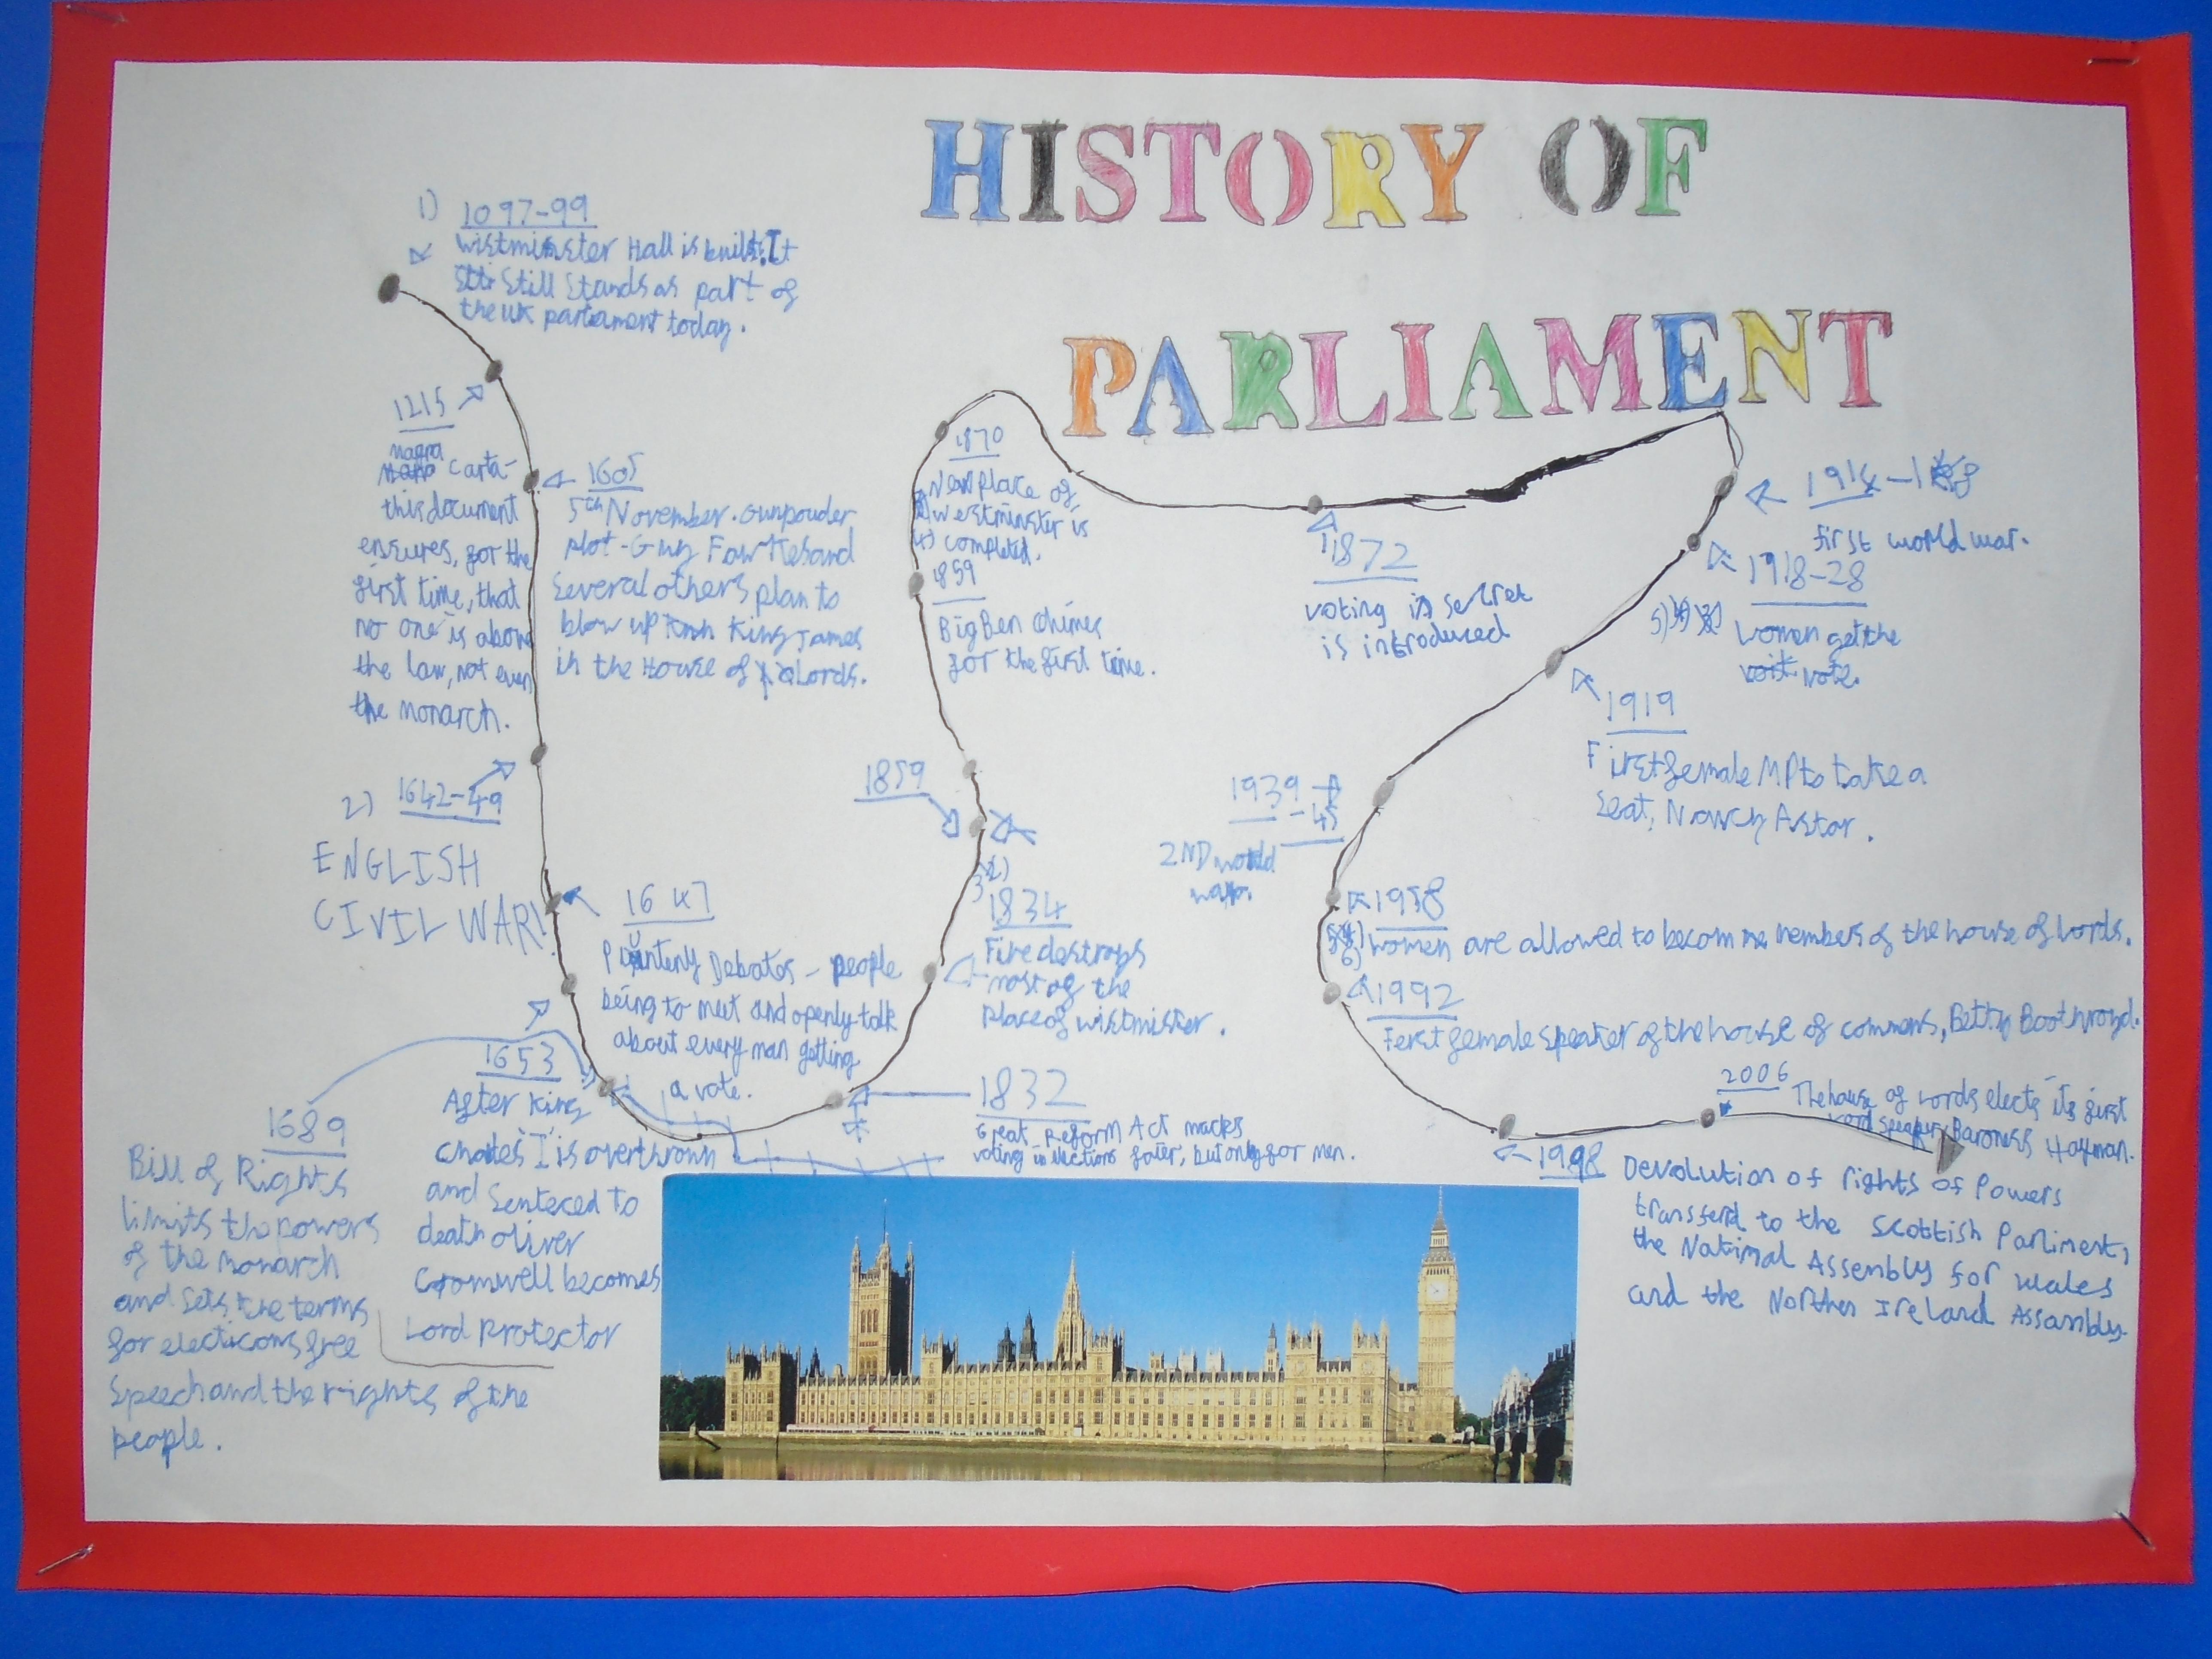 HISTORY OF
PARLIAMENT
1) 1097-99
wistminster Hall is built. It
Still Stands as part of
the UK parliament today.
1215
magna carta-
this document
ensures, for the
first time, that
no one is above
the law, not even
the monarch.
1605
5th November. Gunpouder
plot - Guy Fawkes and
Several others plan to
blow up King James
in the House of Lords.
2) 1642-49
ENGLISH
CIVIL WAR!
1647
Debates - people
being to meet and openly talk
about every man getting
a vote.
1653
After King
Charles "I" is overthrown
and Senteced to
death oliver
Cromwell becomes
Lord Protector
1689
Bill of Rights
limits the powers
of the monarch
and sets the terms
for electicons free
Speech and the rights of the
people.
1832
Great Reform Act macks
voting in elections fater, but only for men.
3)
1834
Fire destroys
most of the
place of wistmister.
1859
1859
Big Ben chimes
for the first time.
1870
New place of
westminster is
4) completed.
1872
voting in secret
is introduced
1914-18
first world war.
1918-28
5) women get the
vote.
1919
First female MP to take a
seat, Nancy Astor.
1939
-45
2ND world
war.
1958
6) women are allowed to becom me members of the house of lords.
1992
Ferst female speaker of the house of commons, Betty Boothroyd.
1998 Devolution of rights of Powers
transferd to the Scottish Parliment,
the National Assembly for wales
and the Northen Ireland Assembly.
2006 The house of lords elects its first
Lord speaker, Baroness Hayman.